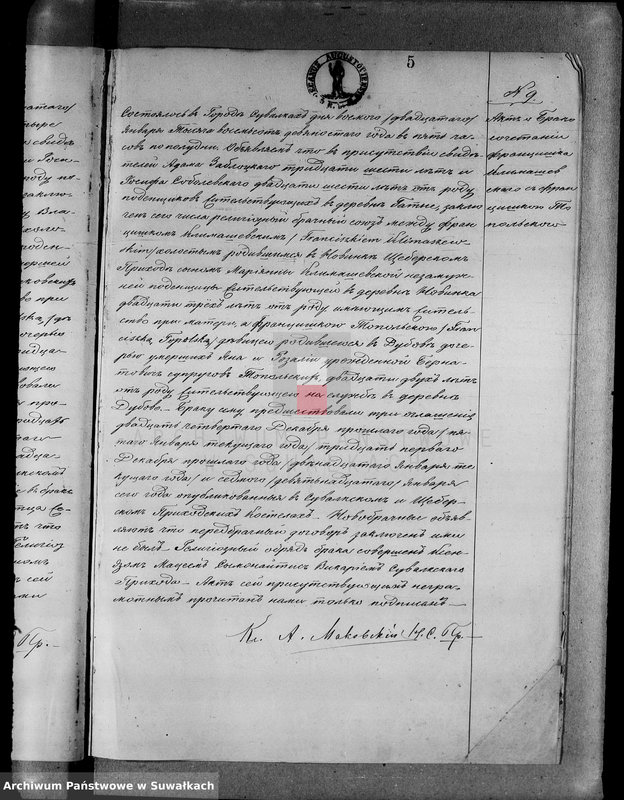 5
№ 9
Актъ о Брако
сочетаніи
Францишка
Климашев
скаго съ Фран
цишкою То
польскою
Состоялось въ Городѣ Сувалкахъ дня восьмого /двадцатаго/
Января Тысяча восемьсотъ девяностаго года въ пять ча-
совъ по полудни. Объявляемъ что въ присутствіи свидѣ
телей Адама Заблоцкаго тридцати шести лѣтъ и
Іосифа Соболевскаго двадцати шести лѣтъ отъ роду
поденщиковъ жительствующихъ въ деревнѣ заклю
ченъ сего числа религіозный брачный союзъ между Фран
цишкомъ Климашевскимъ /Franciszkiem Klimaszew
skim/ холостымъ родившимся въ Новинкѣ Щеберскомъ
Приходѣ сыномъ Маріянны Климашевской незамуж-
ней поденщицы жительствующей въ деревнѣ Новинка
двадцати трехъ лѣтъ отъ роду имѣющимъ житель-
ство при матери, и Францишкою Топольскою /Fran
ciszką Topolską/ дѣвицею родившеюся въ Дубовѣ доче-
рью умершихъ Яна и Розаліи урожденной Берна-
товичъ супруговъ Топольскихъ, двадцати двухъ лѣтъ
отъ роду жительствующею на службѣ въ деревнѣ
Дубово. Браку сему предшествовали три оглашенія
двадцать четвертаго Декабря прошлаго года /пя-
таго Января текущаго года/ тридцать перваго
Декабря прошлаго года /двѣнадцатаго Января те
кущаго года/ и седмого /девятнадцатаго/ Января
сего года опубликованныя въ Сувалкскомъ и Щебер-
скомъ Приходскихъ Костелахъ. Новобрачные объяв-
ляютъ что передбрачный договоръ заключенъ ими
не былъ. Религіозный обрядъ брака совершенъ Ксен-
дзомъ Викаріемъ Сувалкскаго
Прихода. Актъ сей присутствующимъ негра-
мотнымъ прочитанъ нами только подписанъ
Кс. А. Маковскій Н. С. Пр.
Archiwum Państwowe w Suwałkach